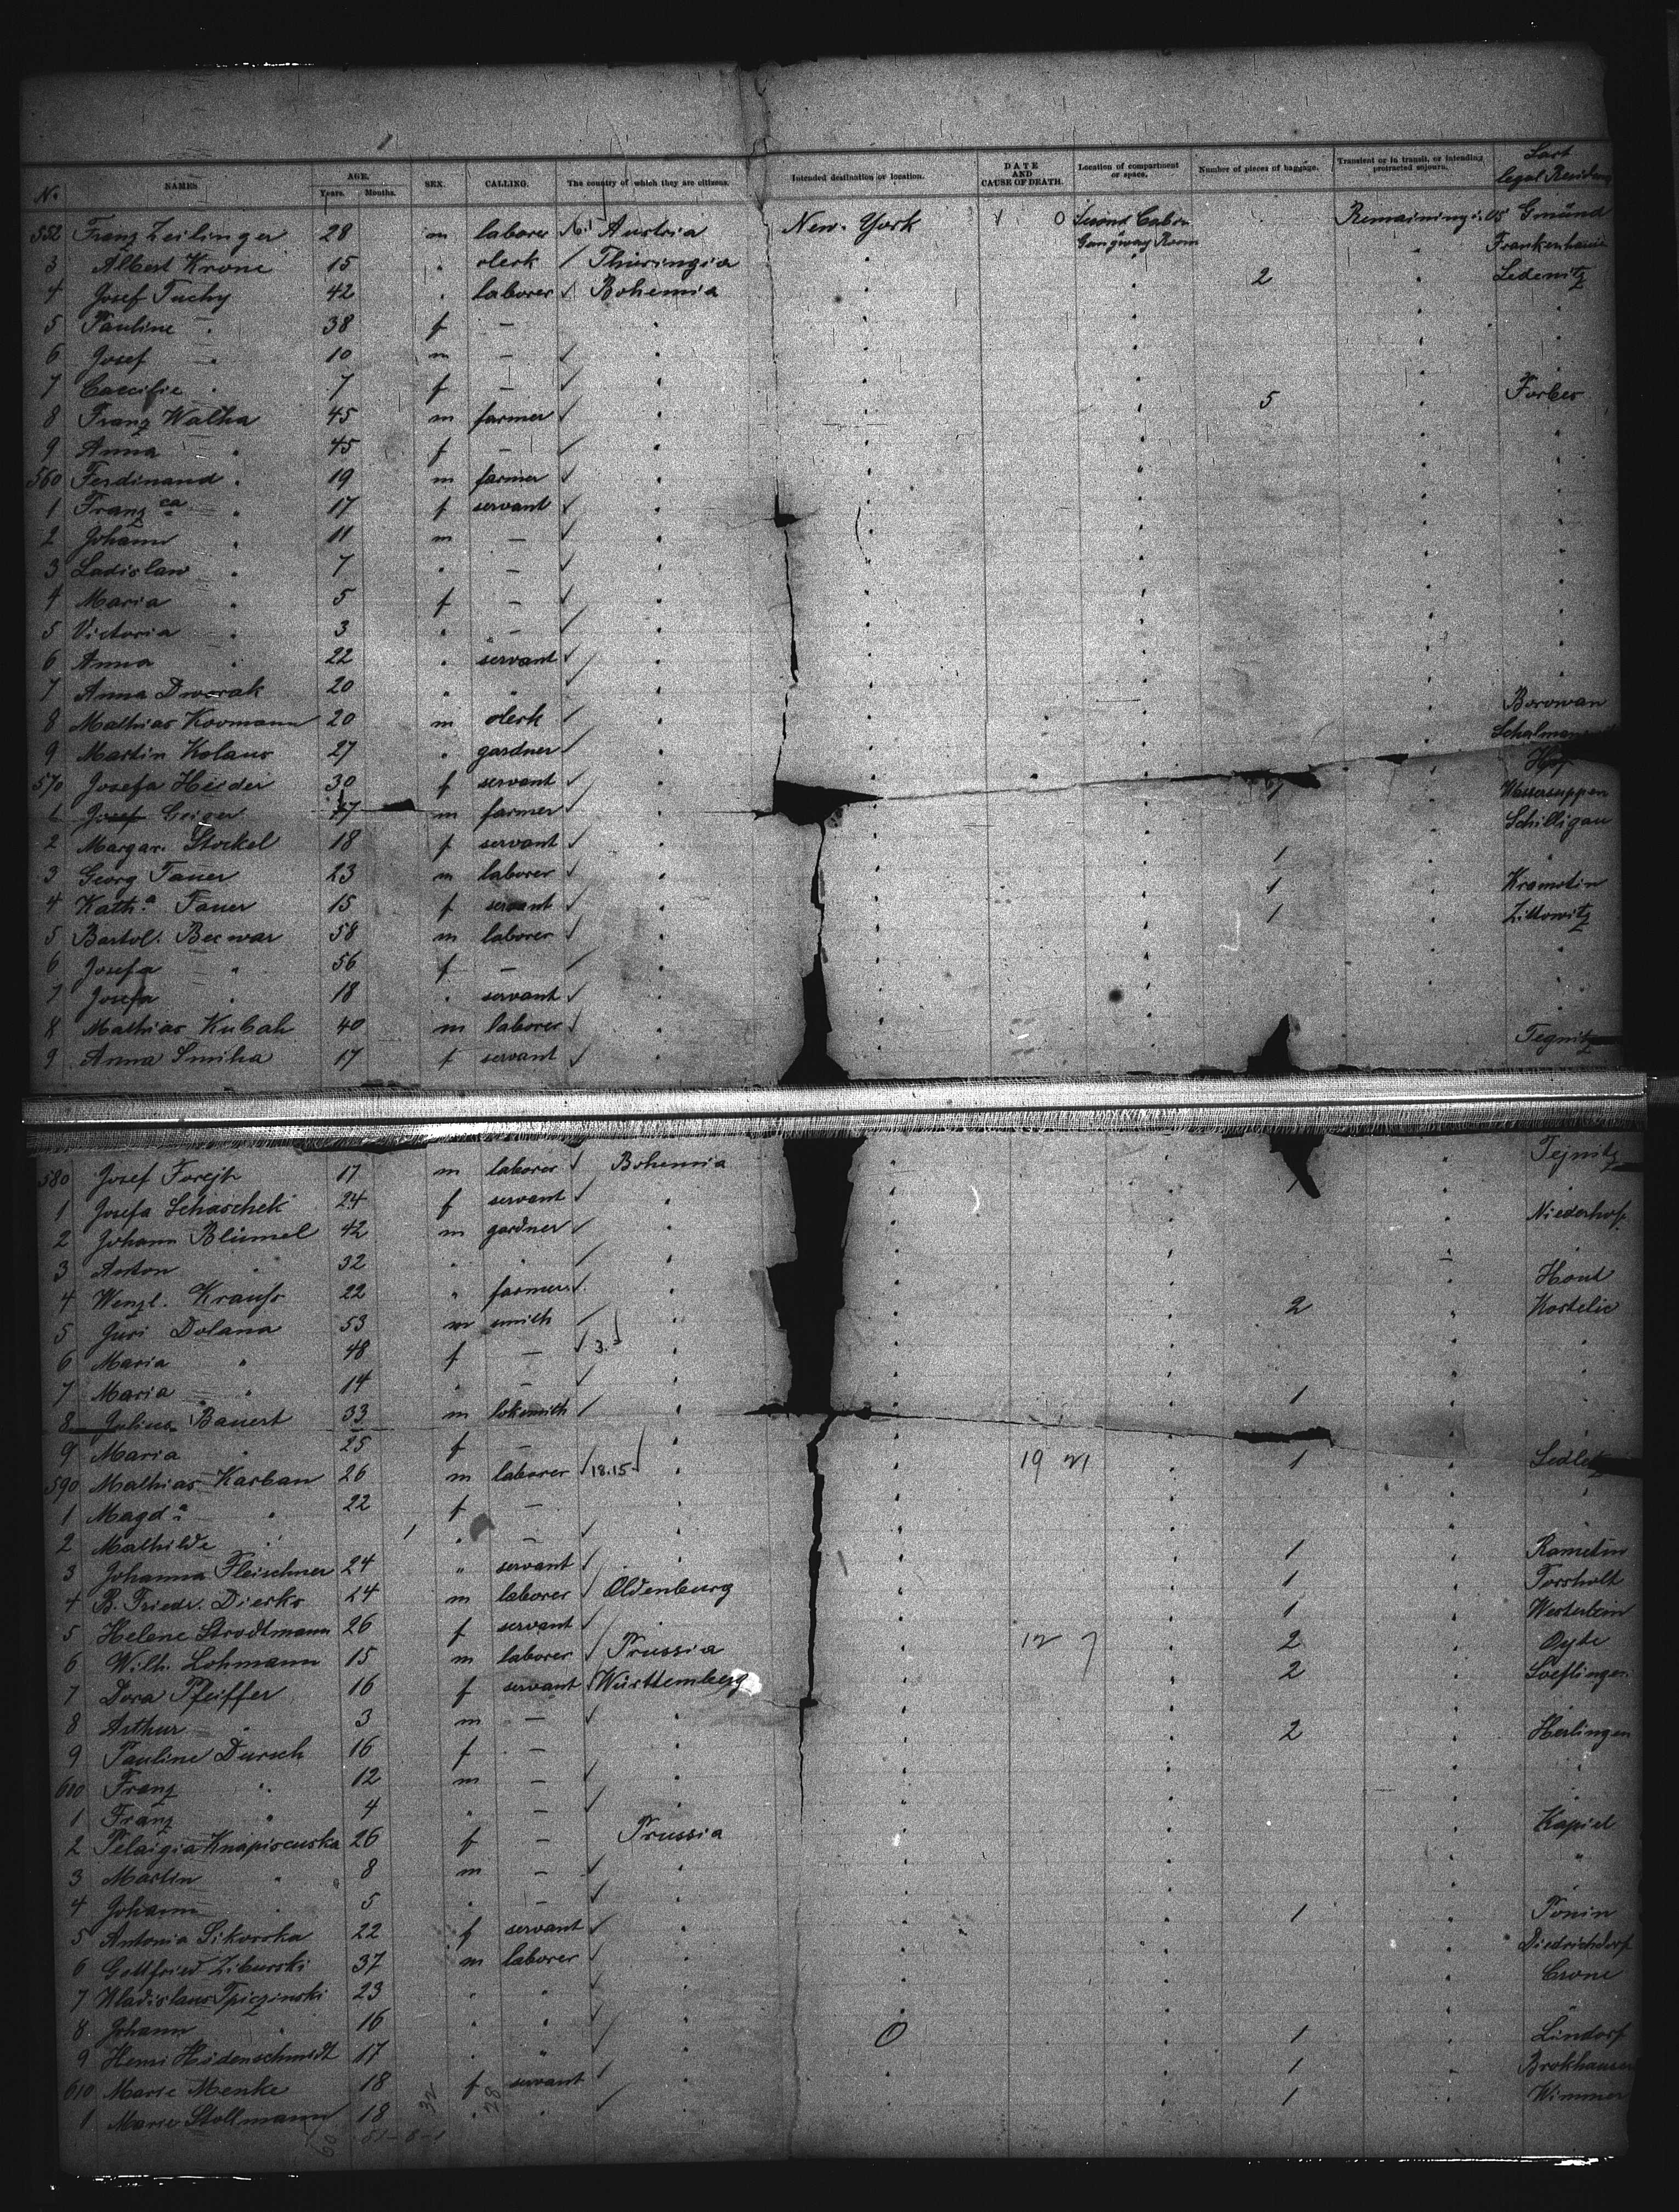 No. NAMES. AGE. Years. Months. SEX. CALLING. The country of which they are citizens. Intended destination or location. DATE AND CAUSE OF DEATH. Location of compartment or space. Number of pieces of baggage. Transient or in transit, or intending protracted sojourn. Last legal Residence
552 Franz Zeilinger 28 m laborer Austria New-York Second Cabin Gangway Room Remaining i. US Gmünd
3 Albert Krone 15 " clerk Thüringia " Frankenhausen
4 Josef Tuchy 42 " laborer Bohemia " " 2 " Ledenitz
5 Pauline " 38 f — " " " " "
6 Josef " 10 m — " " " " "
7 Caecilie " 7 f — " " " " "
8 Franz Walha 45 m farmer " " " 5 " Forbes
9 Anna " 45 f — " " " " "
560 Ferdinand " 19 m farmer " " " " "
1 Franzca " 17 f servant " " " " "
2 Johann " 11 m — " " " " "
3 Ladislaw " 7 " — " " " " "
4 Maria " 5 f — " " " " "
5 Victoria " 3 " — " " " " "
6 Anna " 22 " servant " " " " "
7 Anna Dworak 20 " " " " " " "
8 Mathias Kovmann 20 m clerk " " " " Borowan
9 Martin Kolaus 27 " gardner " " " "
570 Josefa Heider 30 f servant " " " "
1 Josef Geiger m farmer " " " 1 " Wassersuppen
2 Margar. Stockel 18 f servant " " " " Schilligau
3 Georg Tauer 23 m laborer " " " 1 " "
4 Katha. Tauer 15 f servant " " " 1 " Kramotin
5 Bartol. Becwar 58 m laborer " " " 1 " Zittowitz
6 Josefa " 56 f — " " " " "
7 Josefa " 18 " servant " " " " "
8 Mathias Kubah 40 m laborer " " " " "
9 Anna Smiha 17 f servant " " " Tegnitz
580 Josef Forejt 17 m laborer Bohemia " " " Tejnitz
1 Josefa Schaschek 24 f servant " " " "
2 Johann Blümel 42 m gardner " " " " Niederhof
3 Anton " 32 " " " " " " "
4 Wenzl. Krauss 22 " farmer " " " " Hout
5 Juri Dolana 53 m smith " " " 2 " Kostelic
6 Maria " 48 f — 3. " " " " "
7 Maria " 14 " — " " " " "
8 Julius Bauert 33 m loksmith " " " 1 " "
9 Maria " 25 f — " " " "
590 Mathias Karban 26 m laborer 18.15 " " 19 21 " 1 " Sedletz
1 Magda. " 22 f — " " " " "
2 Mathilde " 1 " — " " " " "
3 Johanna Fleischner 24 " servant " " " 1 " Rametin
4 B. Friedr. Dierks 24 m laborer Oldenburg " " 1 " Torsholt
5 Helene Strodtmann 26 f servant " " " 1 "
6 Wilh. Lohmann 15 m laborer Prussia " 12 7 " 2 " Oyte
7 Dora Pfeiffer 16 f servant Württemberg " " 2 " Soeflingen
8 Arthur " 3 m — " " " " "
9 Pauline Dursch 16 f — " " " 2 " Herlingen
600 Franz " 12 m — " " " " "
1 Franz " 4 " — " " " " "
2 Pelaigia Knapiscuska 26 f — Prussia " " " Kapiel
3 Martin " 8 m — " " " " "
4 Johann " 5 " — " " " " "
5 Antonia Sikorska 22 f servant " " " 1 " Ponin
6 Gottfried Ziburski 37 m laborer " " " " Diedrichsdorf
7 Wladislaus Tpiczinski 23 " " " " " " Crone
8 Johann " 16 " " " " " " "
9 Henri Heidenschmidt 17 " " " 0 " 1 " Lindorf
610 Marie Menke 18 f servant " " " 1 " Brokhausen
1 Marie Stollmann 18 " " " " " 1 " Wimmer
60 32 28